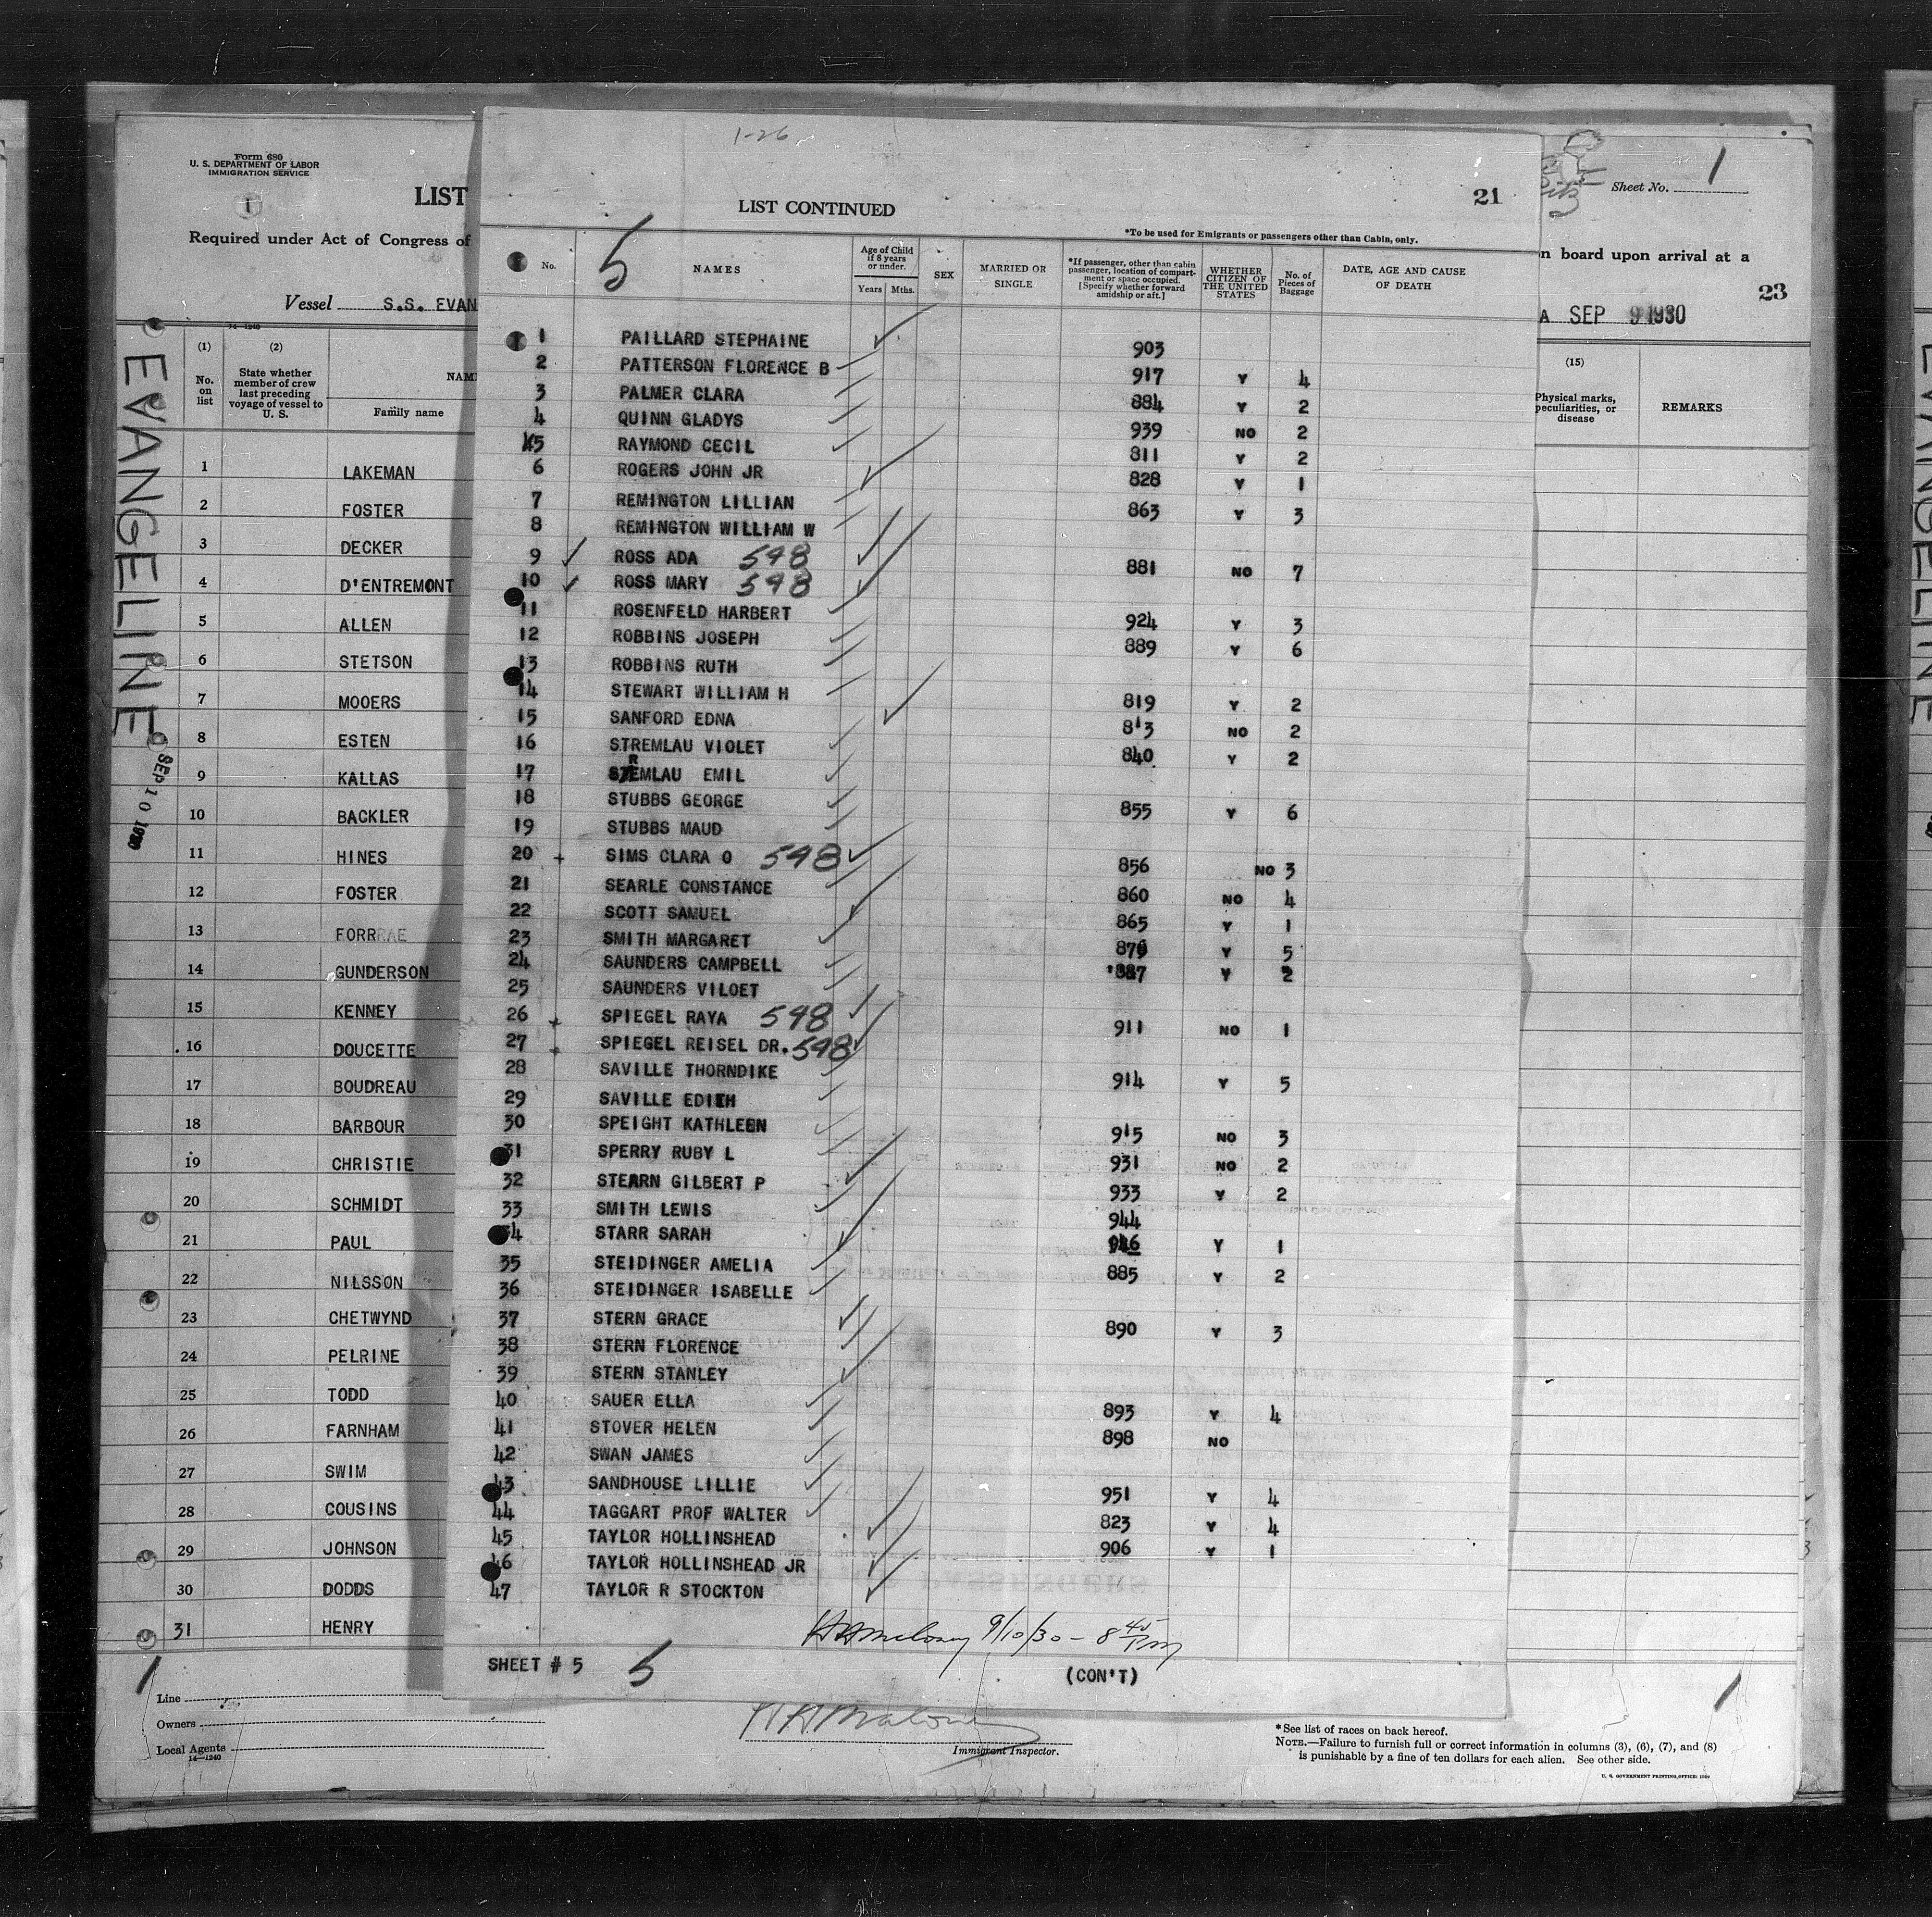 Form 680
U. S. DEPARTMENT OF LABOR
IMMIGRATION SERVICE
1
LIST
Required under Act of Congress of
Vessel S.S. EVAN
14—1240
(1) (2)
No. on list
State whether member of crew last preceding voyage of vessel to U. S.
NAM
Family name
EVANGELINE
SEP 10 1930
1 LAKEMAN
2 FOSTER
3 DECKER
4 D'ENTREMONT
5 ALLEN
6 STETSON
7 MOOERS
8 ESTEN
9 KALLAS
10 BACKLER
11 HINES
12 FOSTER
13 FORRRAE
14 GUNDERSON
15 KENNEY
16 DOUCETTE
17 BOUDREAU
18 BARBOUR
19 CHRISTIE
20 SCHMIDT
21 PAUL
22 NILSSON
23 CHETWYND
24 PELRINE
25 TODD
26 FARNHAM
27 SWIM
28 COUSINS
29 JOHNSON
30 DODDS
31 HENRY
1
Line
Owners
Local Agents
14—1240
1-26
LIST CONTINUED
21
*To be used for Emigrants or passengers other than Cabin, only.
5
No.
NAMES
Age of Child if 8 years or under.
Years Mths.
SEX
MARRIED OR SINGLE
*If passenger, other than cabin passenger, location of compartment or space occupied. [Specify whether forward amidship or aft.]
WHETHER CITIZEN OF THE UNITED STATES
No. of Pieces of Baggage
DATE, AGE AND CAUSE OF DEATH
1 PAILLARD STEPHAINE 903
2 PATTERSON FLORENCE B 917 Y 4
3 PALMER CLARA 884 Y 2
4 QUINN GLADYS 939 NO 2
5 RAYMOND CECIL 811 Y 2
6 ROGERS JOHN JR 828 Y 1
7 REMINGTON LILLIAN 863 Y 3
8 REMINGTON WILLIAM W
9 ROSS ADA 548 881 NO 7
10 ROSS MARY 548
11 ROSENFELD HARBERT 924 Y 3
12 ROBBINS JOSEPH 889 Y 6
13 ROBBINS RUTH
14 STEWART WILLIAM H 819 Y 2
15 SANFORD EDNA 813 NO 2
16 STREMLAU VIOLET 840 Y 2
17 STREMLAU EMIL
18 STUBBS GEORGE 855 Y 6
19 STUBBS MAUD
20 SIMS CLARA O 548 856 NO 3
21 SEARLE CONSTANCE 860 NO 4
22 SCOTT SAMUEL 865 Y 1
23 SMITH MARGARET 876 Y 5
24 SAUNDERS CAMPBELL 887 Y 2
25 SAUNDERS VILOET
26 SPIEGEL RAYA 548 911 NO 1
27 SPIEGEL REISEL DR. 548
28 SAVILLE THORNDIKE 914 Y 5
29 SAVILLE EDITH
30 SPEIGHT KATHLEEN 915 NO 3
31 SPERRY RUBY L 931 NO 2
32 STEARN GILBERT P 933 Y 2
33 SMITH LEWIS 944
34 STARR SARAH 946 Y 1
35 STEIDINGER AMELIA 885 Y 2
36 STEIDINGER ISABELLE
37 STERN GRACE 890 Y 3
38 STERN FLORENCE
39 STERN STANLEY
40 SAUER ELLA 893 Y 4
41 STOVER HELEN 898 NO
42 SWAN JAMES
43 SANDHOUSE LILLIE 951 Y 4
44 TAGGART PROF WALTER 823 Y 4
45 TAYLOR HOLLINSHEAD 906 Y 1
46 TAYLOR HOLLINSHEAD JR
47 TAYLOR R STOCKTON
H H Maloney 9/10/30 - 8 45 Pm
SHEET # 5
5
(CON'T)
H H Maloney
Immigrant Inspector.
Sheet No. 1
n board upon arrival at a
23
A SEP 9 1930
(15)
Physical marks, peculiarities, or disease
REMARKS
1
*See list of races on back hereof.
NOTE.—Failure to furnish full or correct information in columns (3), (6), (7), and (8)
is punishable by a fine of ten dollars for each alien. See other side.
U. S. GOVERNMENT PRINTING OFFICE: 1929
EVANGELINE